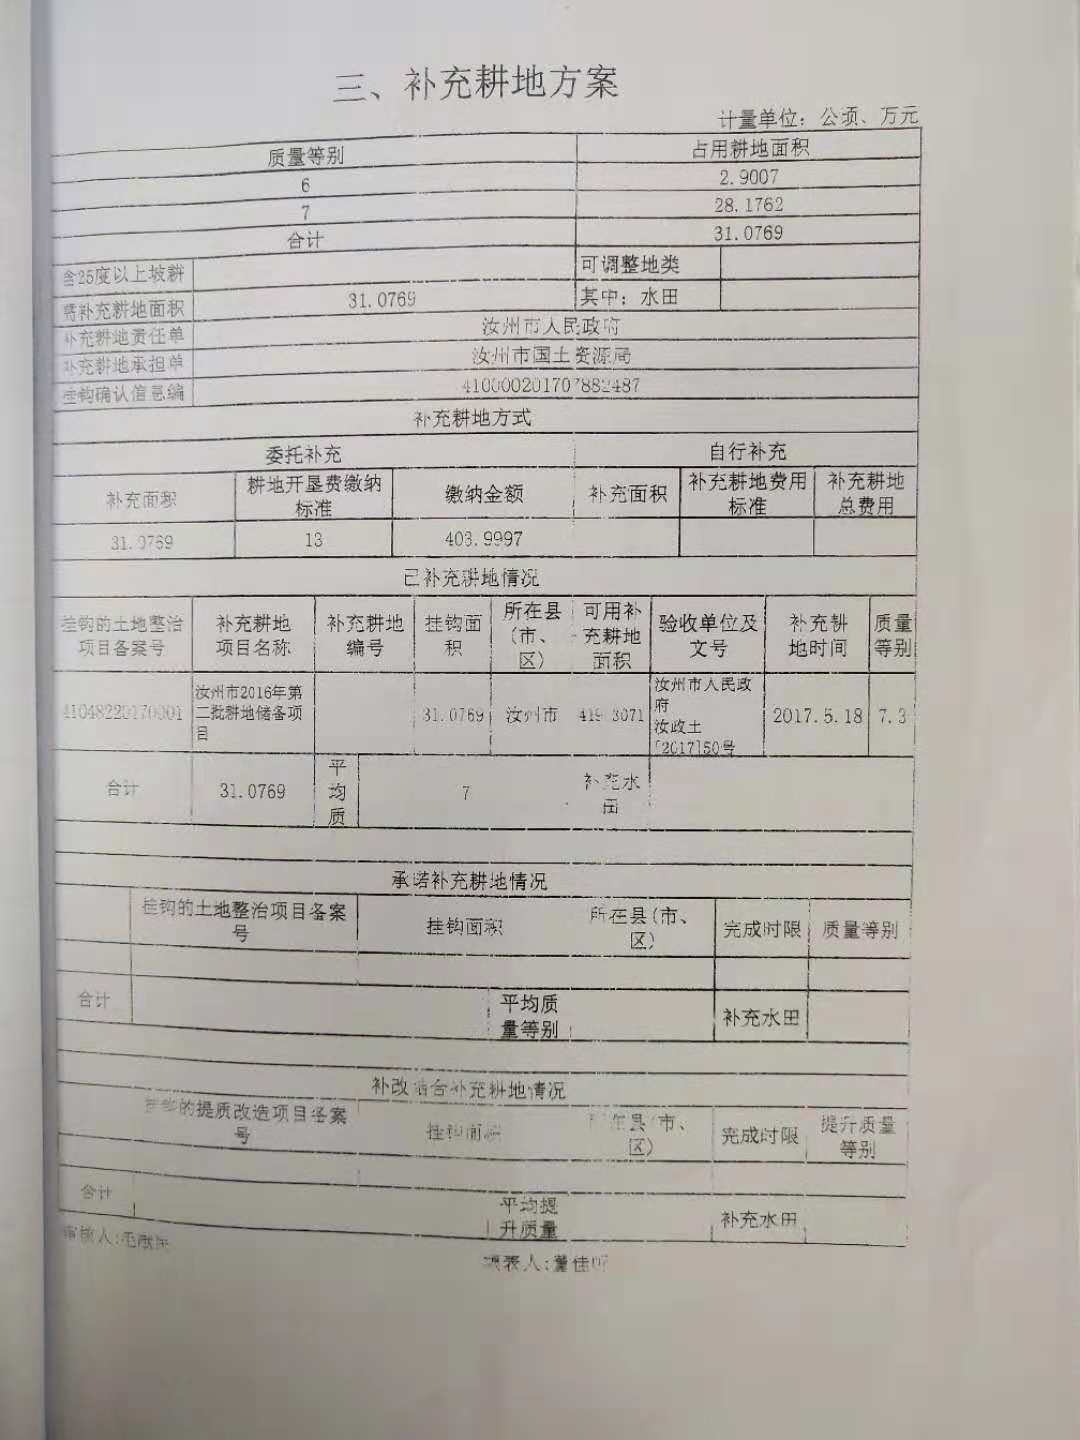 三、补充耕地方案
计量单位：公顷、万元
质量等别 占用耕地面积
6 2.9007
7 28.1762
合计 31.0769
含25度以上坡耕 可调整地类
需补充耕地面积 31.0769 其中：水田
补充耕地责任单 汝州市人民政府
补充耕地承担单 汝州市国土资源局
挂钩确认信息编 410000201707882487
补充耕地方式
委托补充 自行补充
补充面积 耕地开垦费缴纳标准 缴纳金额 补充面积 补充耕地费用标准 补充耕地总费用
31.0769 13 403.9997
已补充耕地情况
挂钩的土地整治项目备案号 补充耕地项目名称 补充耕地编号 挂钩面积 所在县(市、区) 可用补充耕地面积 验收单位及文号 补充耕地时间 质量等别
41048220170001 汝州市2016年第二批耕地储备项目 31.0769 汝州市 419.3071 汝州市人民政府汝政土[2017]50号 2017.5.18 7.3
合计 31.0769 平均质 7 补充水田
承诺补充耕地情况
挂钩的土地整治项目备案号 挂钩面积 所在县(市、区) 完成时限 质量等别
合计 平均质量等别 补充水田
补改结合补充耕地情况
挂钩的提质改造项目备案号 挂钩面积 所在县(市、区) 完成时限 提升质量等别
合计 平均提升质量 补充水田
审核人:
填表人:董佳